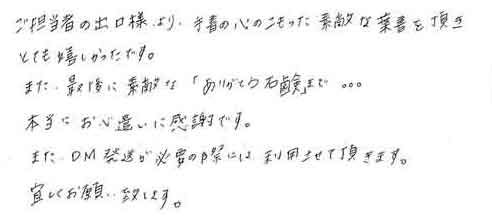 ご担当者の出口様より、手書の心のこもった素敵な葉書を頂き
とても嬉しかったです。
また、最後に素敵な「ありがとう石鹸」まで...
本当にお心遣いに感謝です。
また、DM発送が必要の際には利用させて頂きます。
宜しくお願い致します。